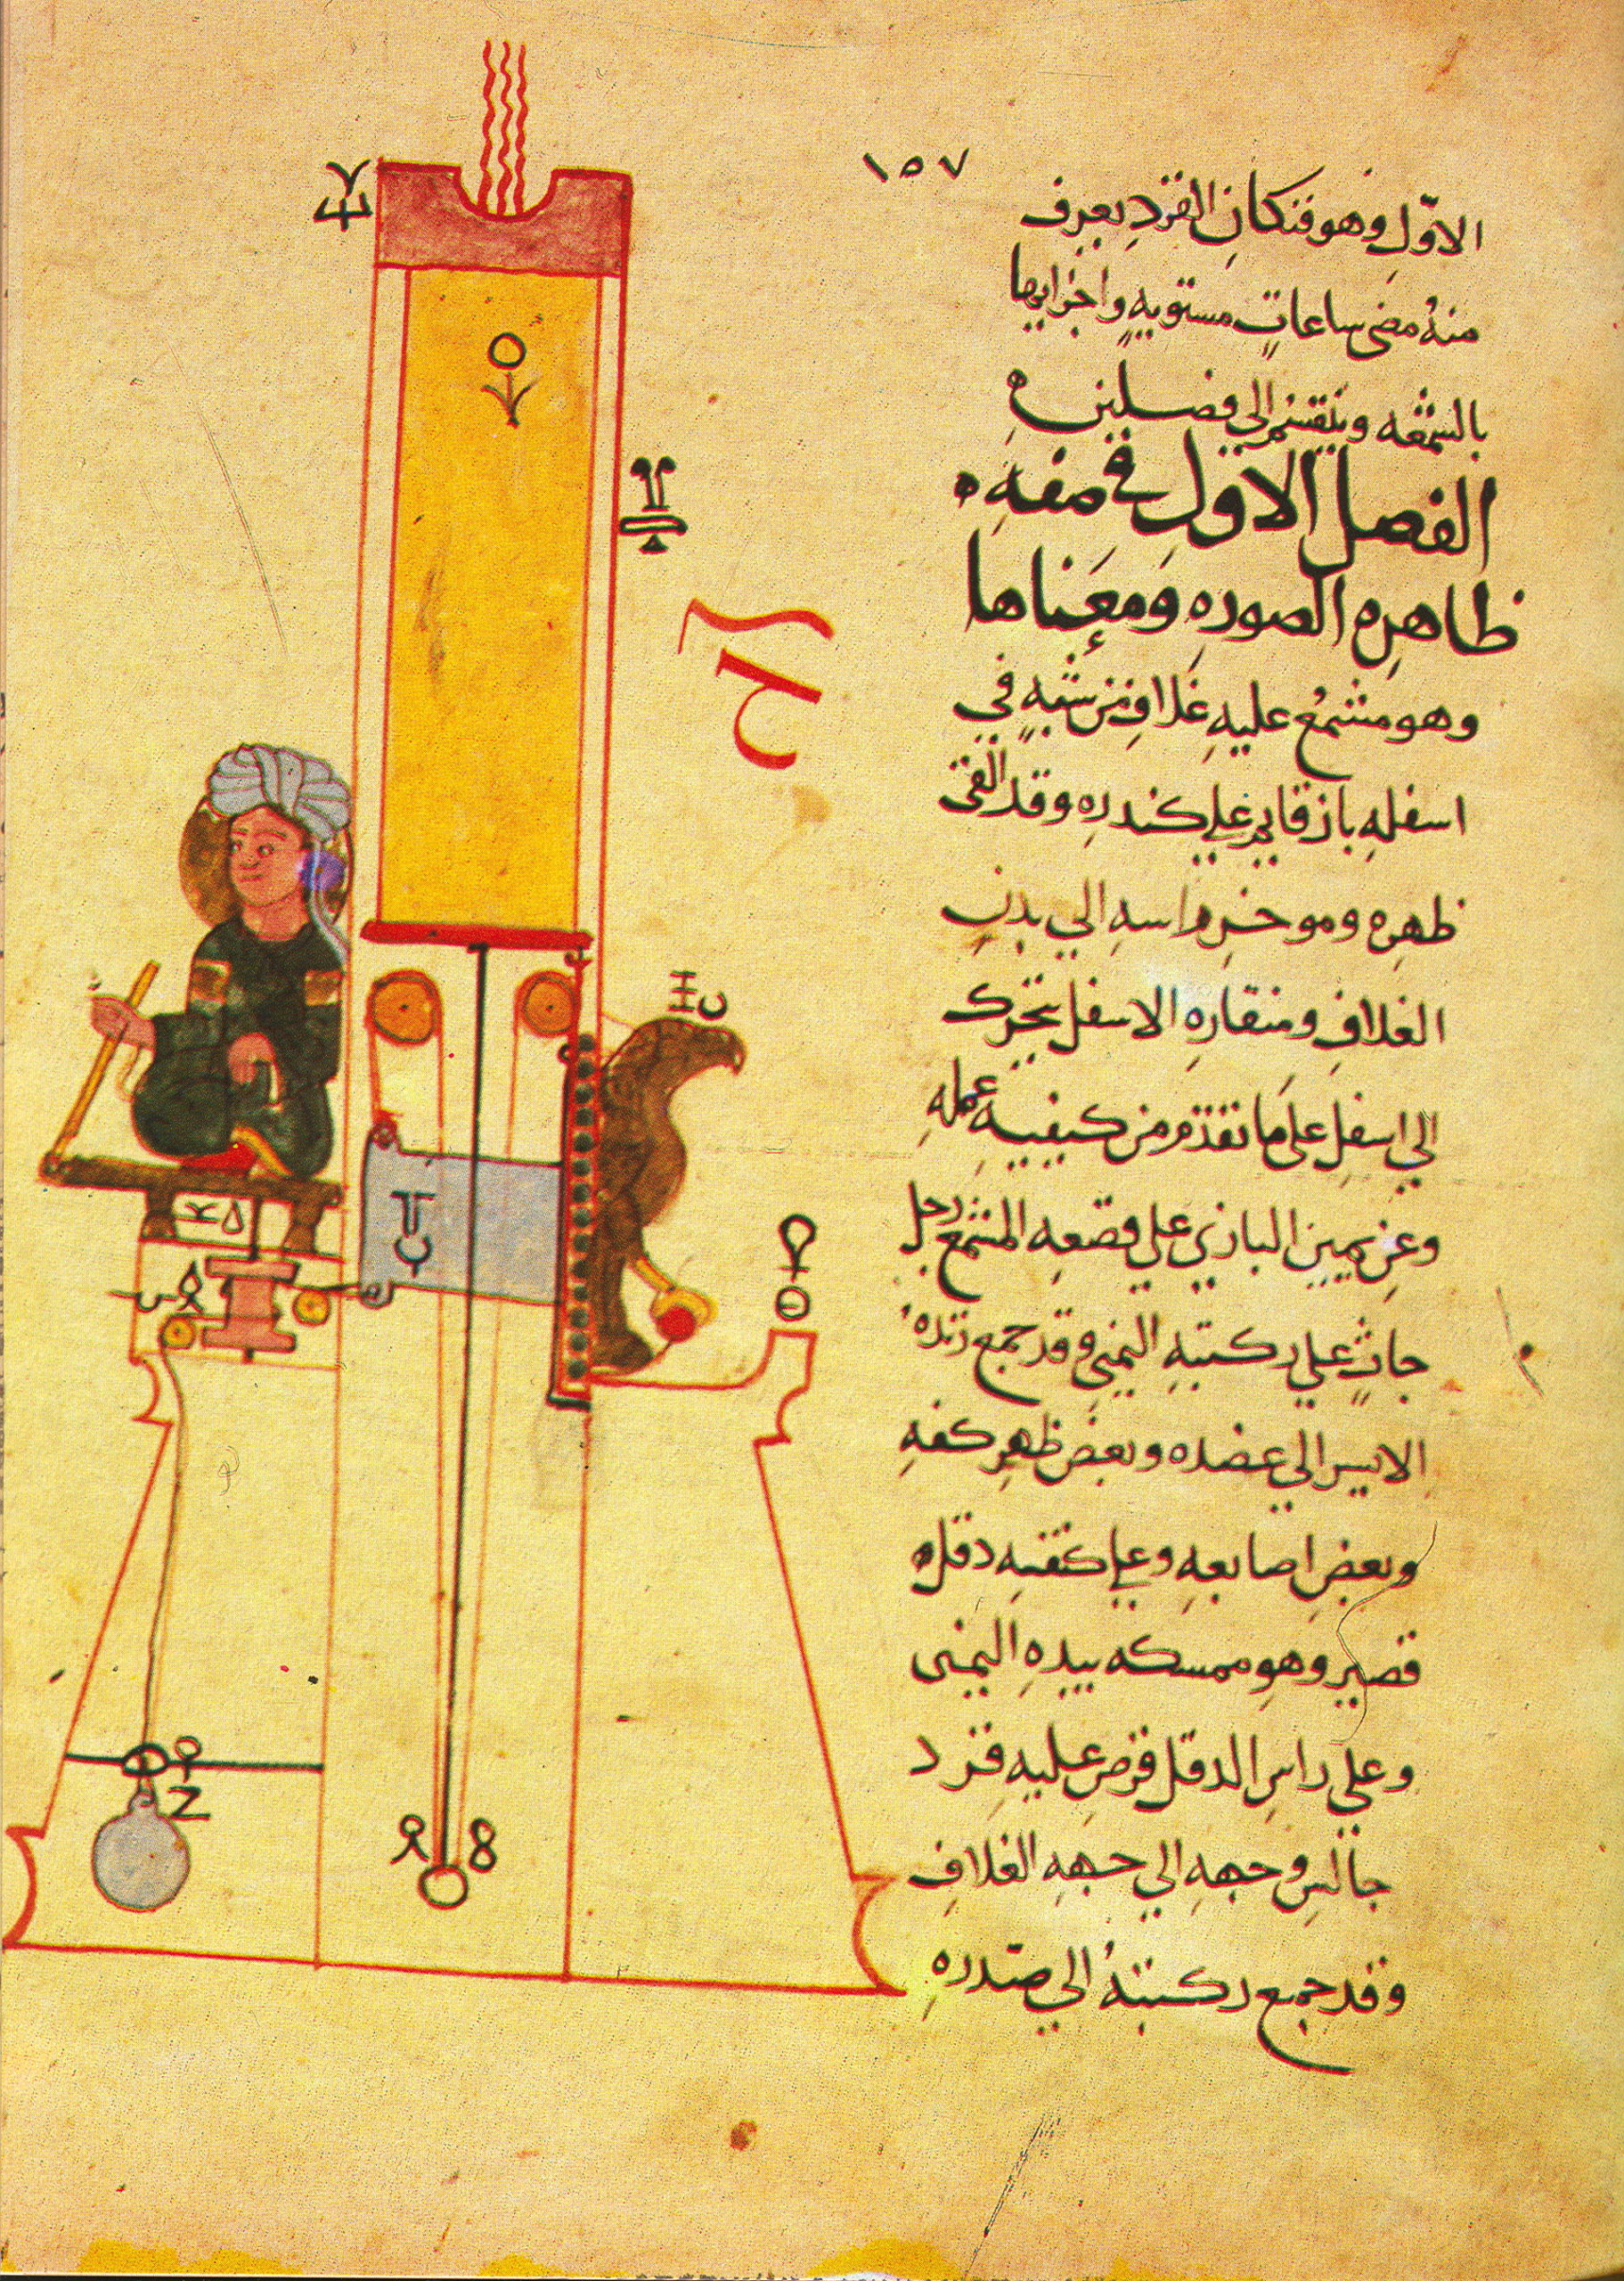 ١٥٧
الاول وهو فنكان القرد يعرف
منه مضى ساعات مستويه واجزايها
بالشمعه وينقسم الى فصلين ه
الفصل الاول في صفه ه
ظاهره الصوره ومعناها
وهو مشمع عليه غلاف من شبه في
اسفله باز قايم على كندره وقد القى
ظهره وموخر راسه الي بدن
الغلاف ومنقاره الاسفل يتحرك
الي اسفل على ما تقدم من كيفيه عمله
وعن يمين البازي علي قصعه الشمع رجل
جاث علي ركبته اليمني وقد جمع زنده
الايسر الي عضده وبعض ظهر كفه
وبعض اصابعه وعلي كتفه دقل
قصير وهو ممسكه بيده اليمنى
وعلي راس الدقل قرص عليه قرد
جالس وجهه الي جهه الغلاف
وقد جمع ركبته الي صدره